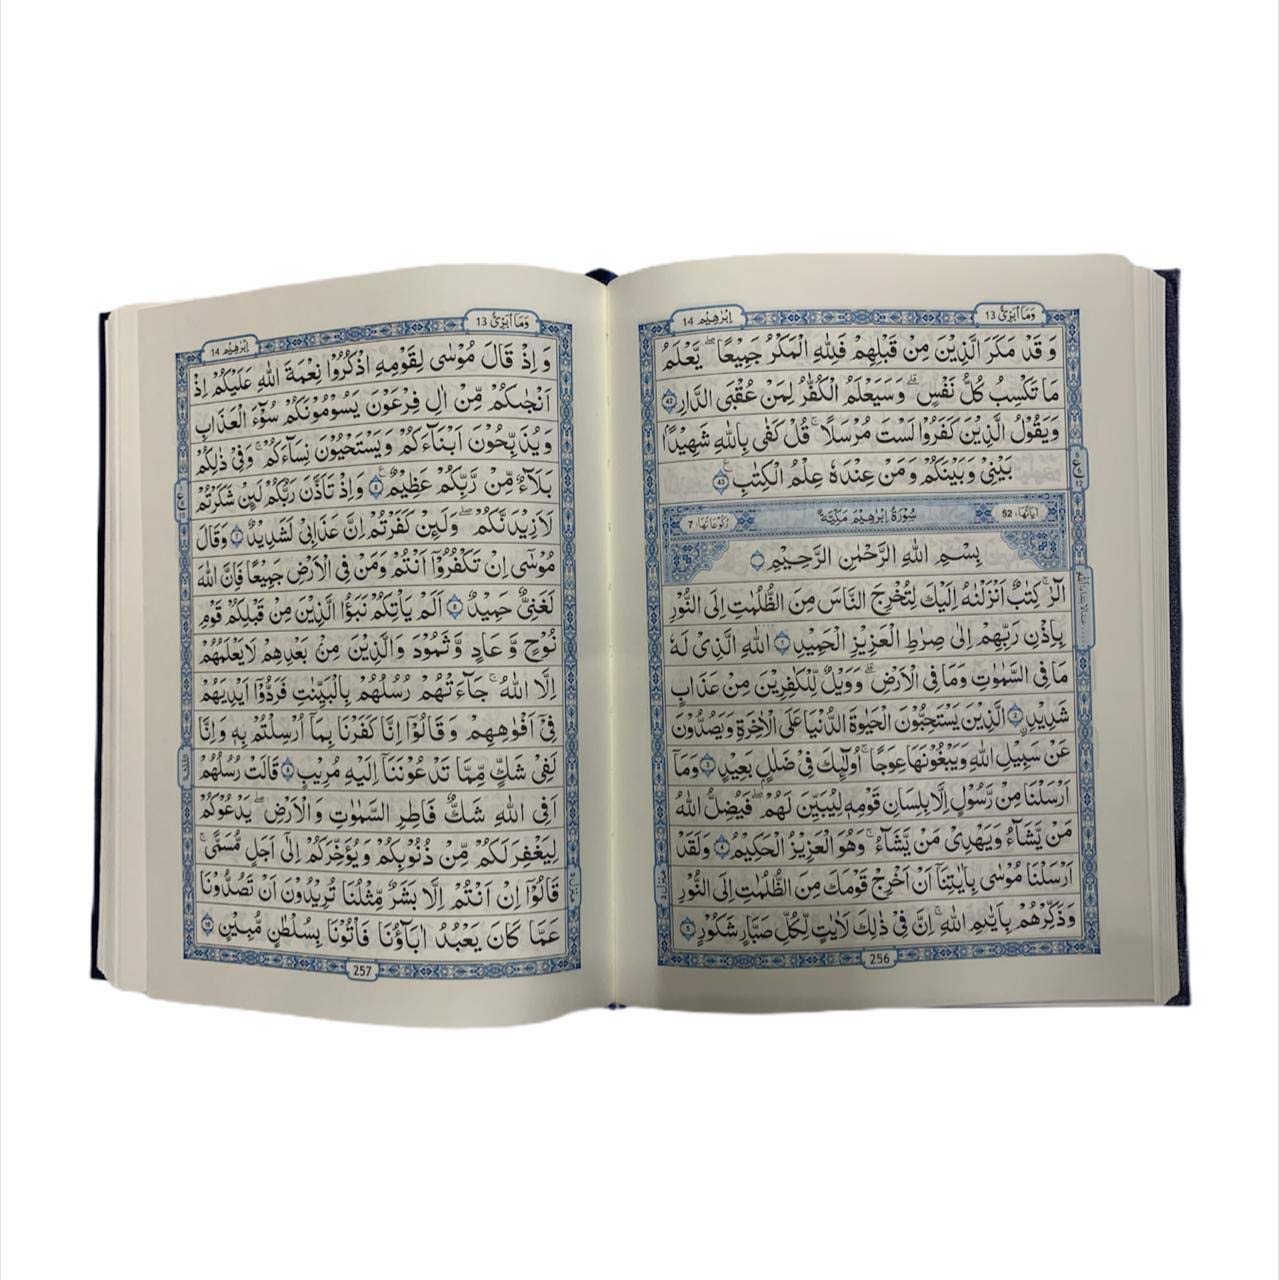 وَمَآ اُبَرِّئُ 13
اِبْرٰهِيْم 14
وَ قَدْ مَكَرَ الَّذِيْنَ مِنْ قَبْلِهِمْ فَلِلّٰهِ الْمَكْرُ جَمِيْعًا ؕ يَعْلَمُ
مَا تَكْسِبُ كُلُّ نَفْسٍ ؕ وَسَيَعْلَمُ الْكُفّٰرُ لِمَنْ عُقْبَى الدَّارِ 42
وَيَقُوْلُ الَّذِيْنَ كَفَرُوْا لَسْتَ مُرْسَلًا ؕ قُلْ كَفٰى بِاللّٰهِ شَهِيْدًا
بَيْنِيْ وَبَيْنَكُمْ وَمَنْ عِنْدَهٗ عِلْمُ الْكِتٰبِ 43
اٰيَاتُهَا: 52
سُوْرَةُ اِبْرٰهِيْمَ مَكِّيَّةٌ
رُكُوْعَاتُهَا: 7
بِسْمِ اللّٰهِ الرَّحْمٰنِ الرَّحِيْمِ
الٓرٰ ۚ كِتٰبٌ اَنْزَلْنٰهُ اِلَيْكَ لِتُخْرِجَ النَّاسَ مِنَ الظُّلُمٰتِ اِلَى النُّوْرِ
بِاِذْنِ رَبِّهِمْ اِلٰى صِرٰطِ الْعَزِيْزِ الْحَمِيْدِ 1 اللّٰهِ الَّذِيْ لَهٗ
مَا فِى السَّمٰوٰتِ وَمَا فِى الْاَرْضِ ؕ وَوَيْلٌ لِّلْكٰفِرِيْنَ مِنْ عَذَابٍ
شَدِيْدِ 2 الَّذِيْنَ يَسْتَحِبُّوْنَ الْحَيٰوةَ الدُّنْيَا عَلَى الْاٰخِرَةِ وَيَصُدُّوْنَ
عَنْ سَبِيْلِ اللّٰهِ وَيَبْغُوْنَهَا عِوَجًا ؕ اُولٰٓئِكَ فِيْ ضَلٰلٍ بَعِيْدٍ 3 وَمَآ
اَرْسَلْنَا مِنْ رَّسُوْلٍ اِلَّا بِلِسَانِ قَوْمِهٖ لِيُبَيِّنَ لَهُمْ ؕ فَيُضِلُّ اللّٰهُ
مَنْ يَّشَآءُ وَيَهْدِيْ مَنْ يَّشَآءُ ؕ وَهُوَ الْعَزِيْزُ الْحَكِيْمُ 4 وَلَقَدْ
اَرْسَلْنَا مُوْسٰى بِاٰيٰتِنَآ اَنْ اَخْرِجْ قَوْمَكَ مِنَ الظُّلُمٰتِ اِلَى النُّوْرِ
وَذَكِّرْهُمْ بِاَيّٰىمِ اللّٰهِ ؕ اِنَّ فِيْ ذٰلِكَ لَاٰيٰتٍ لِّكُلِّ صَبَّارٍ شَكُوْرٍ 5
256
وَمَآ اُبَرِّئُ 13
اِبْرٰهِيْم 14
وَ اِذْ قَالَ مُوْسٰى لِقَوْمِهِ اذْكُرُوْا نِعْمَةَ اللّٰهِ عَلَيْكُمْ اِذْ
اَنْجٰىكُمْ مِّنْ اٰلِ فِرْعَوْنَ يَسُوْمُوْنَكُمْ سُوْٓءَ الْعَذَابِ
وَيُذَبِّحُوْنَ اَبْنَآءَكُمْ وَيَسْتَحْيُوْنَ نِسَآءَكُمْ ؕ وَفِيْ ذٰلِكُمْ
بَلَآءٌ مِّنْ رَّبِّكُمْ عَظِيْمٌ 6 وَاِذْ تَاَذَّنَ رَبُّكُمْ لَئِنْ شَكَرْتُمْ
لَاَزِيْدَنَّكُمْ وَلَئِنْ كَفَرْتُمْ اِنَّ عَذَابِيْ لَشَدِيْدٌ 7 وَقَالَ
مُوْسٰٓى اِنْ تَكْفُرُوْٓا اَنْتُمْ وَمَنْ فِى الْاَرْضِ جَمِيْعًا فَاِنَّ اللّٰهَ
لَغَنِيٌّ حَمِيْدٌ 8 اَلَمْ يَاْتِكُمْ نَبَؤُا الَّذِيْنَ مِنْ قَبْلِكُمْ قَوْمِ
نُوْحٍ وَّ عَادٍ وَّ ثَمُوْدَ وَالَّذِيْنَ مِنْ بَعْدِهِمْ لَا يَعْلَمُهُمْ
اِلَّا اللّٰهُ ؕ جَآءَتْهُمْ رُسُلُهُمْ بِالْبَيِّنٰتِ فَرَدُّوْٓا اَيْدِيَهُمْ
فِيْٓ اَفْوَاهِهِمْ وَ قَالُوْٓا اِنَّا كَفَرْنَا بِمَآ اُرْسِلْتُمْ بِهٖ وَاِنَّا
لَفِيْ شَكٍّ مِّمَّا تَدْعُوْنَنَآ اِلَيْهِ مُرِيْبٍ 9 قَالَتْ رُسُلُهُمْ
اَفِى اللّٰهِ شَكٌّ فَاطِرِ السَّمٰوٰتِ وَالْاَرْضِ ؕ يَدْعُوْكُمْ
لِيَغْفِرَ لَكُمْ مِّنْ ذُنُوْبِكُمْ وَيُؤَخِّرَكُمْ اِلٰٓى اَجَلٍ مُّسَمًّى ؕ
قَالُوْٓا اِنْ اَنْتُمْ اِلَّا بَشَرٌ مِّثْلُنَا تُرِيْدُوْنَ اَنْ تَصُدُّوْنَا
عَمَّا كَانَ يَعْبُدُ اٰبَآؤُنَا فَاْتُوْنَا بِسُلْطٰنٍ مُّبِيْنٍ 10
257